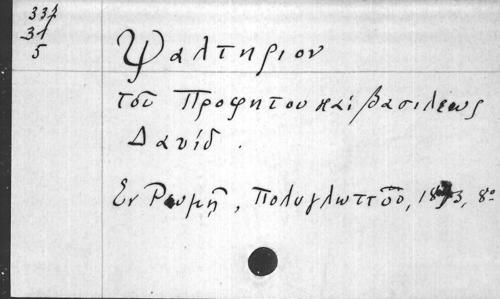 331
31
5
Ψαλτηριον
τοῦ Προφητου καί βασιλεως
Δαυίδ.
Εν Ρωμῃ, Πολυγλωττου, 1873, 8º